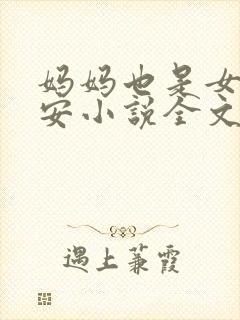 妈妈也是女
安小说全文
遇上蒹霞